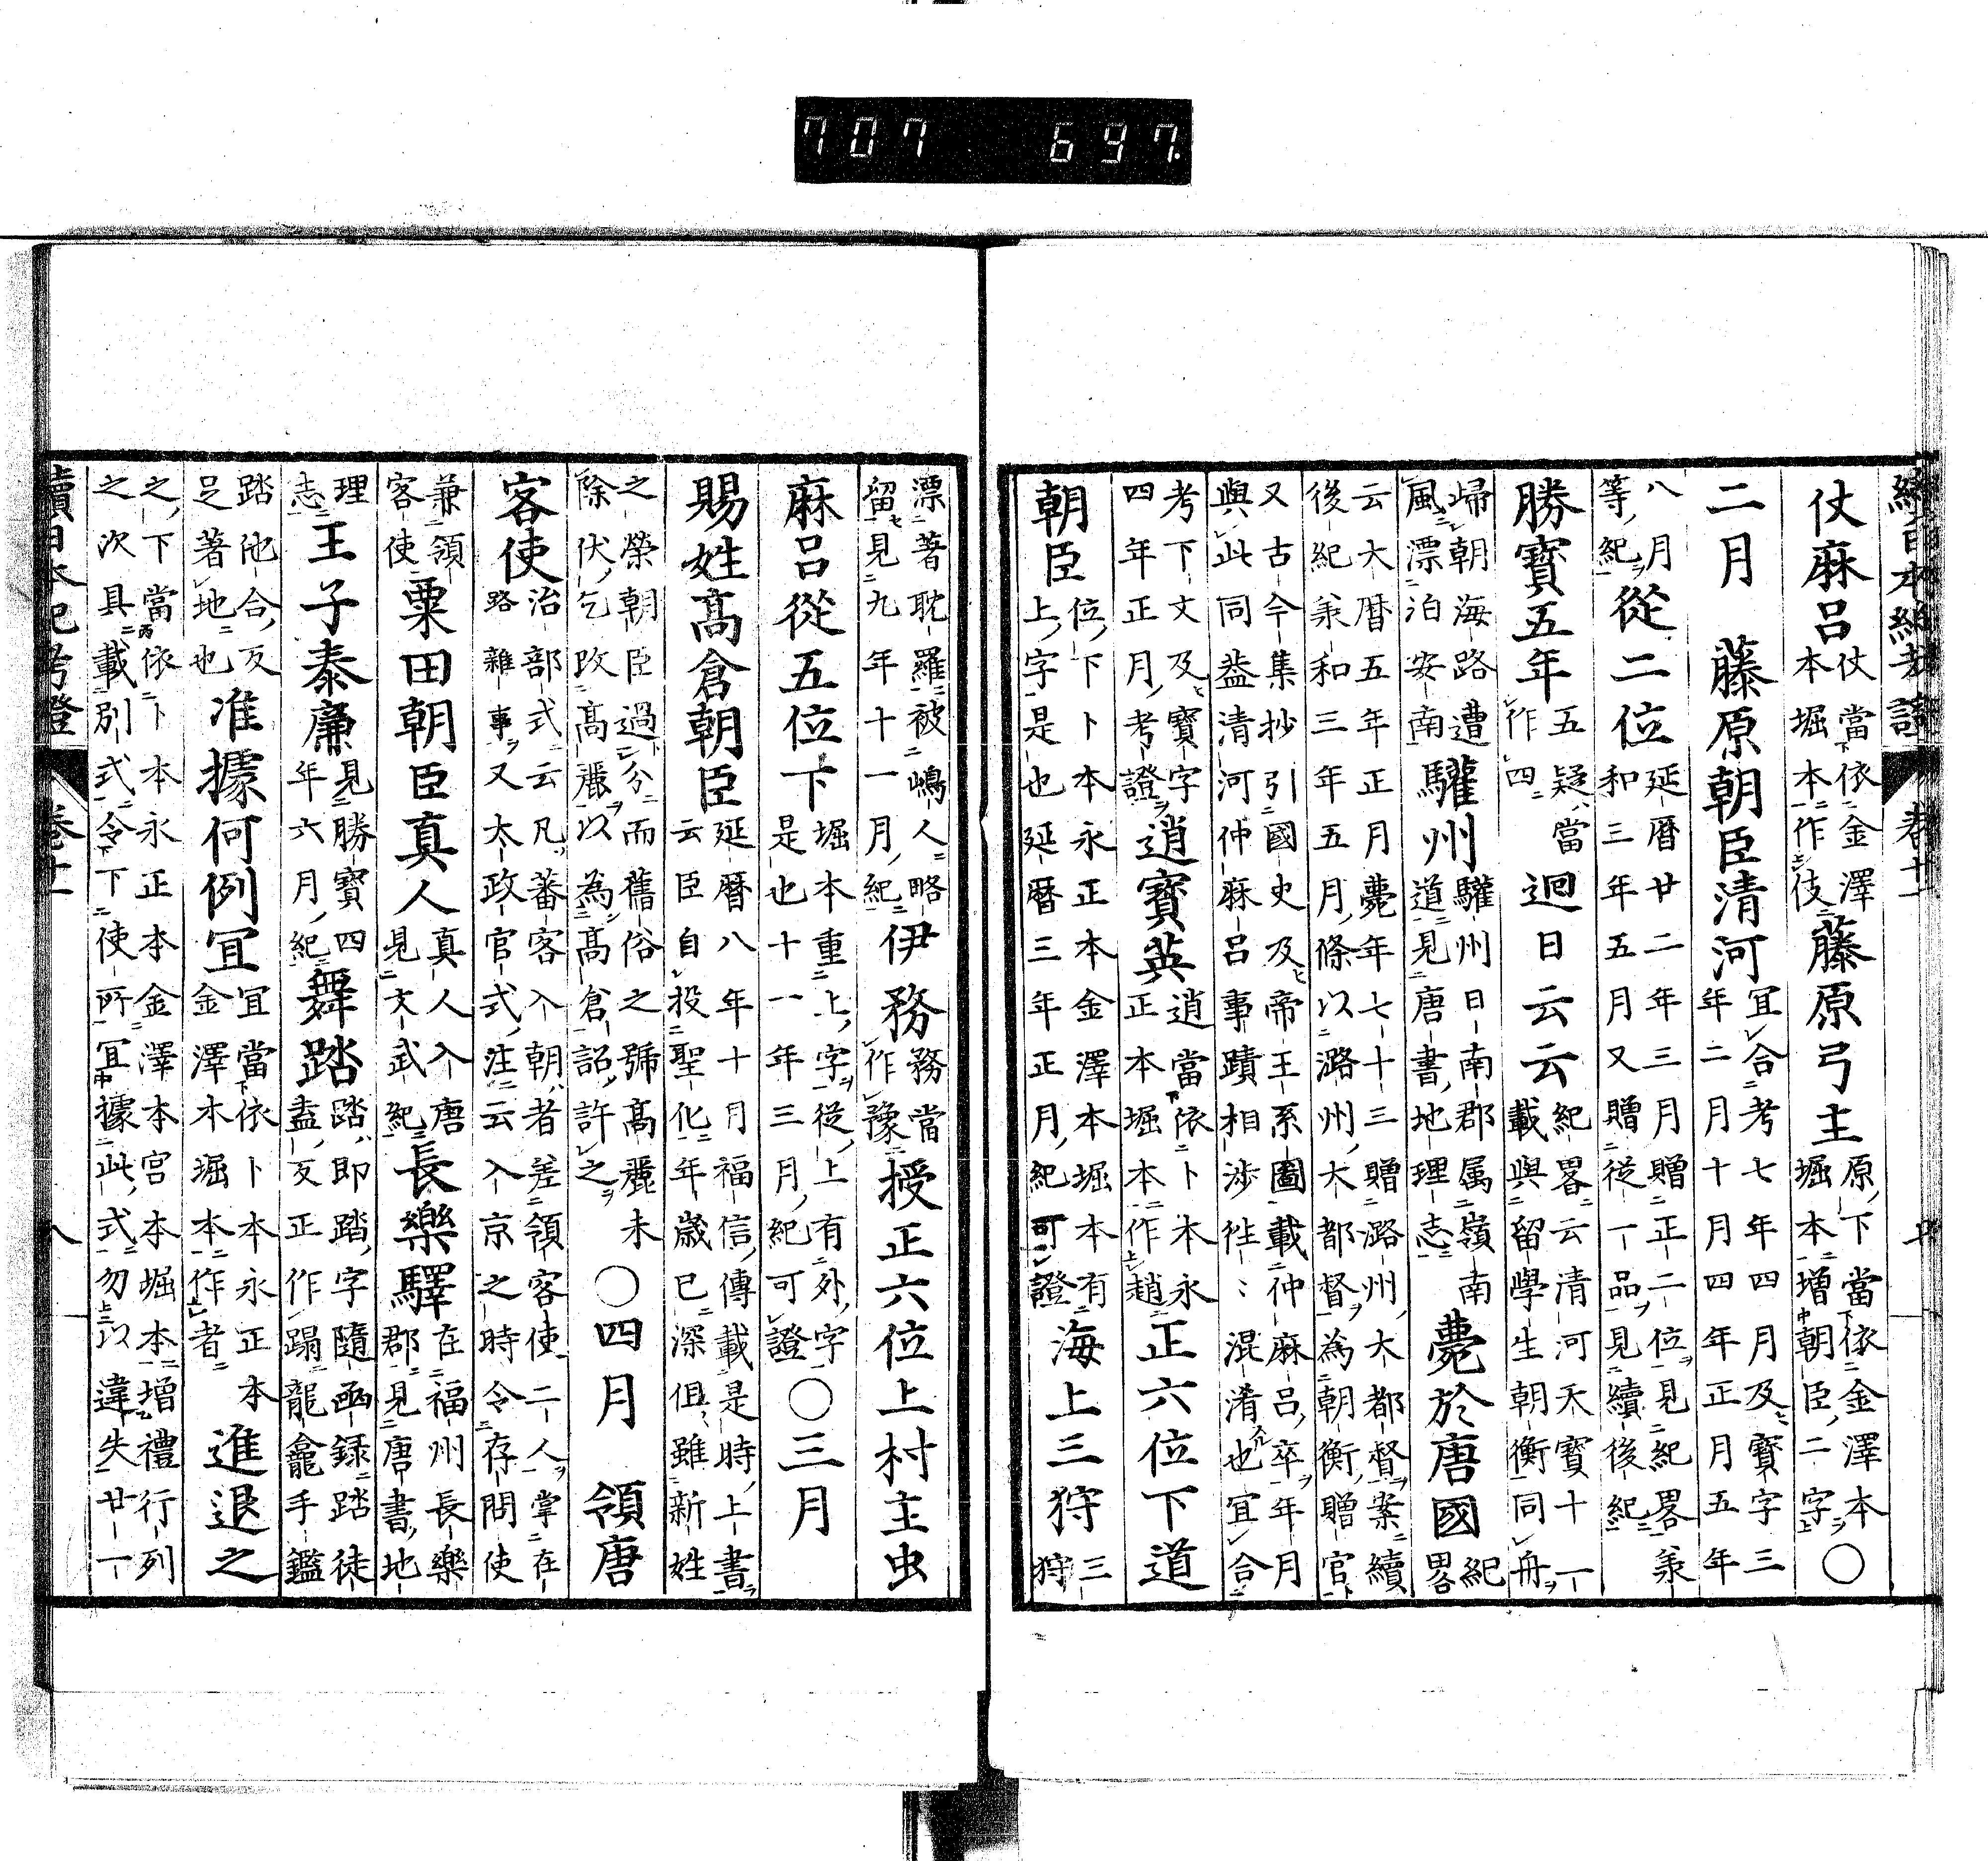 707 697.
續日本紀考證 卷十一
仗麻呂 仗當依金澤本堀本作伎 藤原弓主 原下當依金澤本堀本增朝臣二字 ○
二月 藤原朝臣清河 宜合考七年四月及寶字三年二月十月四年正月五年
八月等紀 從二位 延曆廿二年三月贈正二位見紀畧兼和三年五月又贈從一品見續後紀
勝寶五年 五疑當作四 迴日云云 紀畧云清河天寶十一載與留學生朝衡同舟
歸朝海路遭風漂泊安南 驩州 驩州日南郡属嶺南道見唐書地理志 薨於唐國 紀畧
云大曆五年正月薨年七十三贈潞州大都督案續後紀兼和三年五月條以潞州大都督為朝衡贈官
又古今集抄引國史及帝王系圖載仲麻呂卒年月與此同葢清河仲麻呂事蹟相涉徃〻混淆也宜合
考下文及寶字四年正月考證 逍寶英 逍當依卜本永正本堀本作趙 正六位下道
朝臣 位下卜本永正本金澤本堀本有上字是也延曆三年正月紀可證 海上三狩 三狩
漂著耽羅被嶋人略留見九年十一月紀 伊務 務當作豫 授正六位上村主虫
麻呂從五位下 堀本重上字從上有外字是也十一年三月紀可證 ○三月
賜姓髙倉朝臣 延曆八年十月福信傳載是時上書云臣自投聖化年歲已深但雖新姓
之榮朝臣過分而舊俗之號髙麗未除伏乞改髙麗以為髙倉詔許之 ○四月 領唐
客使 治部式云凡蕃客入朝者差領客使二人掌在路雜事又太政官式注云入京之時令存問使
兼領客使 粟田朝臣真人 真人入唐見文武紀 長樂驛 在福州長樂郡見唐書地
理志 王子泰廉 見勝寶四年六月紀 舞踏 踏即踏字隨函録踏徒盍反正作蹋龍龕手鑑
踏他合反足著地也 准據何例宜 宜當依卜本永正本金澤本堀本作者 進退之
之下當依卜本永正本金澤本宮本堀本增禮行列之次具載別式令下使所宜據此式勿以違失廿一
續日本紀考證 卷十一 八